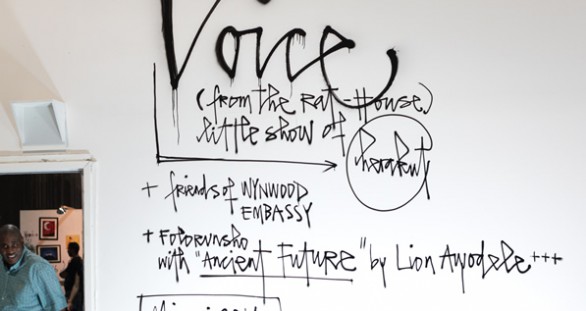 Voice
(from the Rat-House)
little show of
herakut
+ friends of WYNWOOD
EMBASSY
+
with "Ancient Future" by Lion Ayodele +++